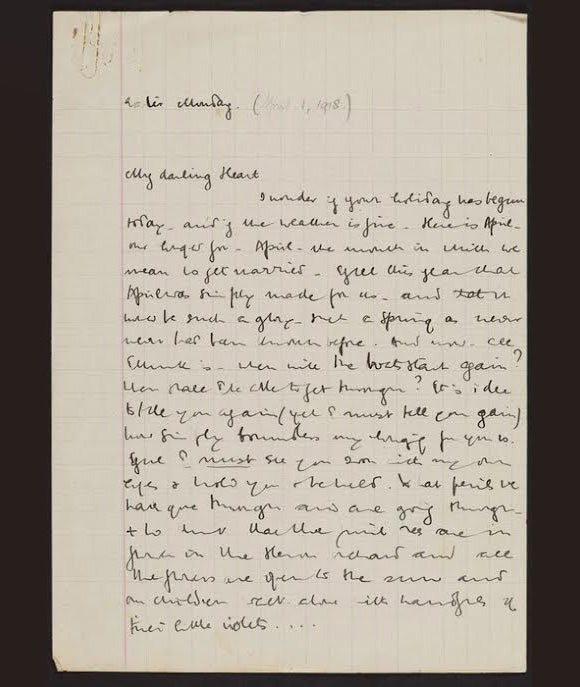 Easter Monday. (April 1, 1918.)
My darling Heart
I wonder if your holiday has begun
today - and if the weather is fine - Here is April -
our longed for - April - the month in which we
mean to get married - I felt this year that
April was simply made for us - and that it
would be such a glory - such a Spring as never
never had been known before. And now - all
I think is - when will the boats start again?
When shall I be able to get through? It is idle
to tell you again (yet I must tell you again)
how simply boundless my longing for you is.
I feel I must see you soon with my own
eyes & hold you & be held. What perils we
have gone through and are going through -
+ to think that the are in
on the and all
the are open to the sun and
our children with handfuls of
their little violets....